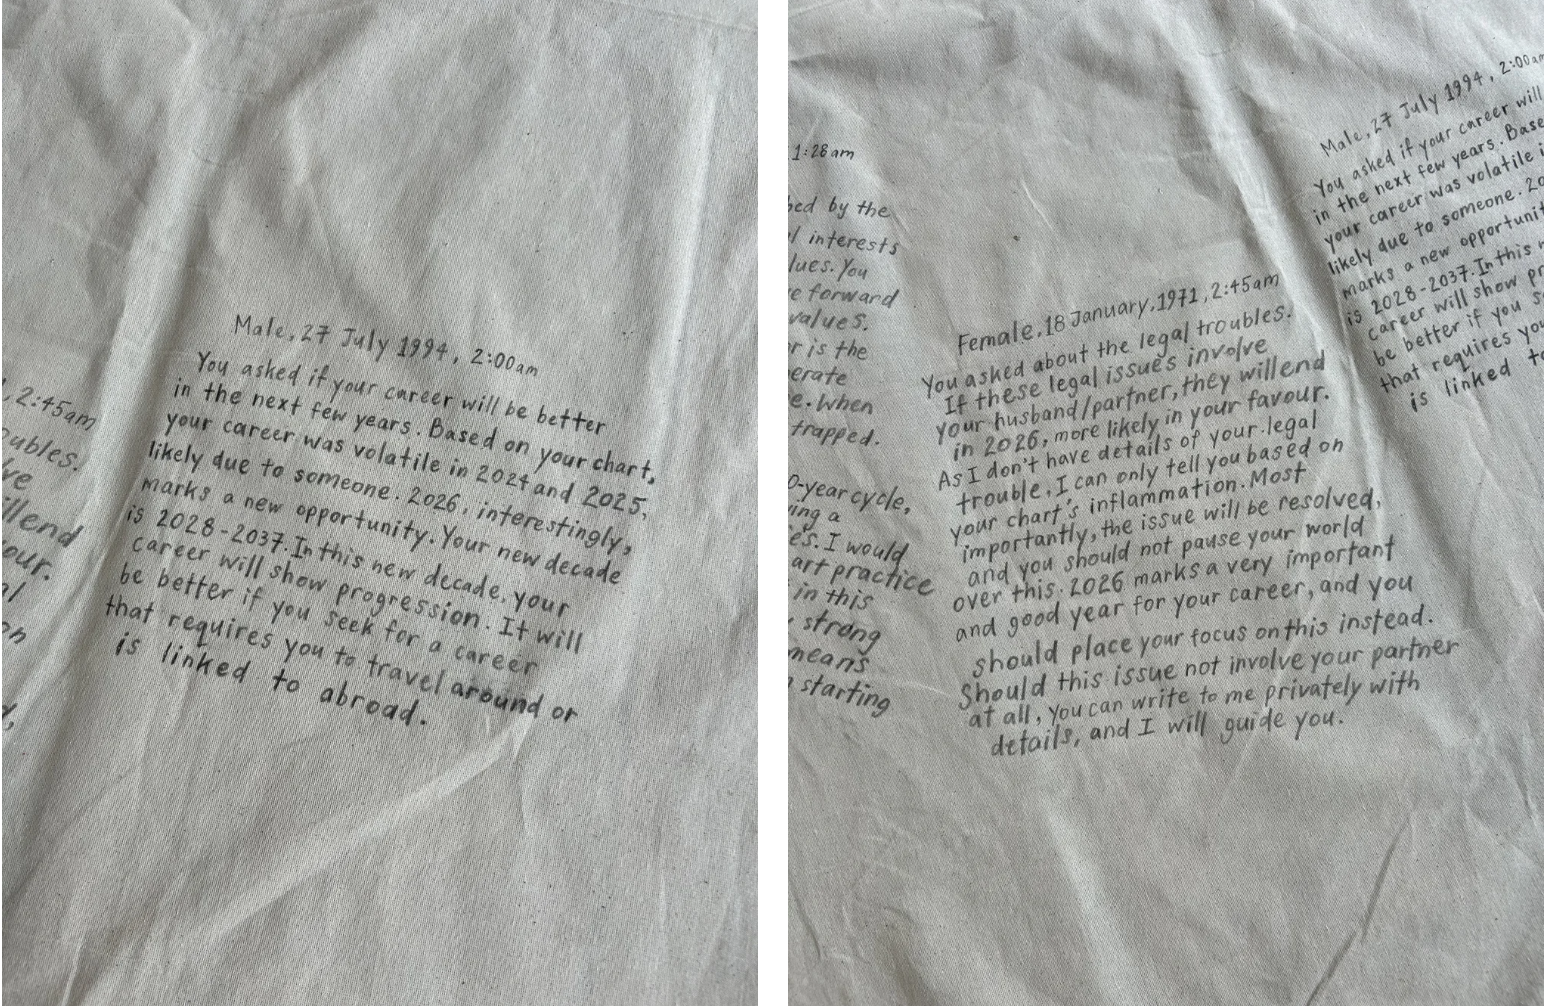 Male, 27 July 1994, 2:00am
You asked if your career will be better
in the next few years. Based on your chart,
your career was volatile in 2024 and 2025,
likely due to someone. 2026, interestingly,
marks a new opportunity. Your new decade
is 2028-2037. In this new decade, your
career will show progression. It will
be better if you seek for a career
that requires you to travel around or
is linked to abroad.
, 2:45am
1:28am
by the
interests
You
forward
values.
is the
When
trapped.
-year cycle,
I would
art practice
in this
strong
means
starting
Female, 18 January, 1971, 2:45am
You asked about the legal troubles.
If these legal issues involve
your husband/partner, they will end
in 2026, more likely in your favour.
As I don't have details of your legal
trouble, I can only tell you based on
your chart's inflammation. Most
importantly, the issue will be resolved,
and you should not pause your world
over this. 2026 marks a very important
and good year for your career, and you
should place your focus on this instead.
Should this issue not involve your partner
at all, you can write to me privately with
details, and I will guide you.
Male, 27 July 1994, 2:00am
You asked if your career will
in the next few years.
your career was volatile
likely due to someone.
marks a new
is 2028-2037. In this
career will show
be better if you
that requires
is linked to